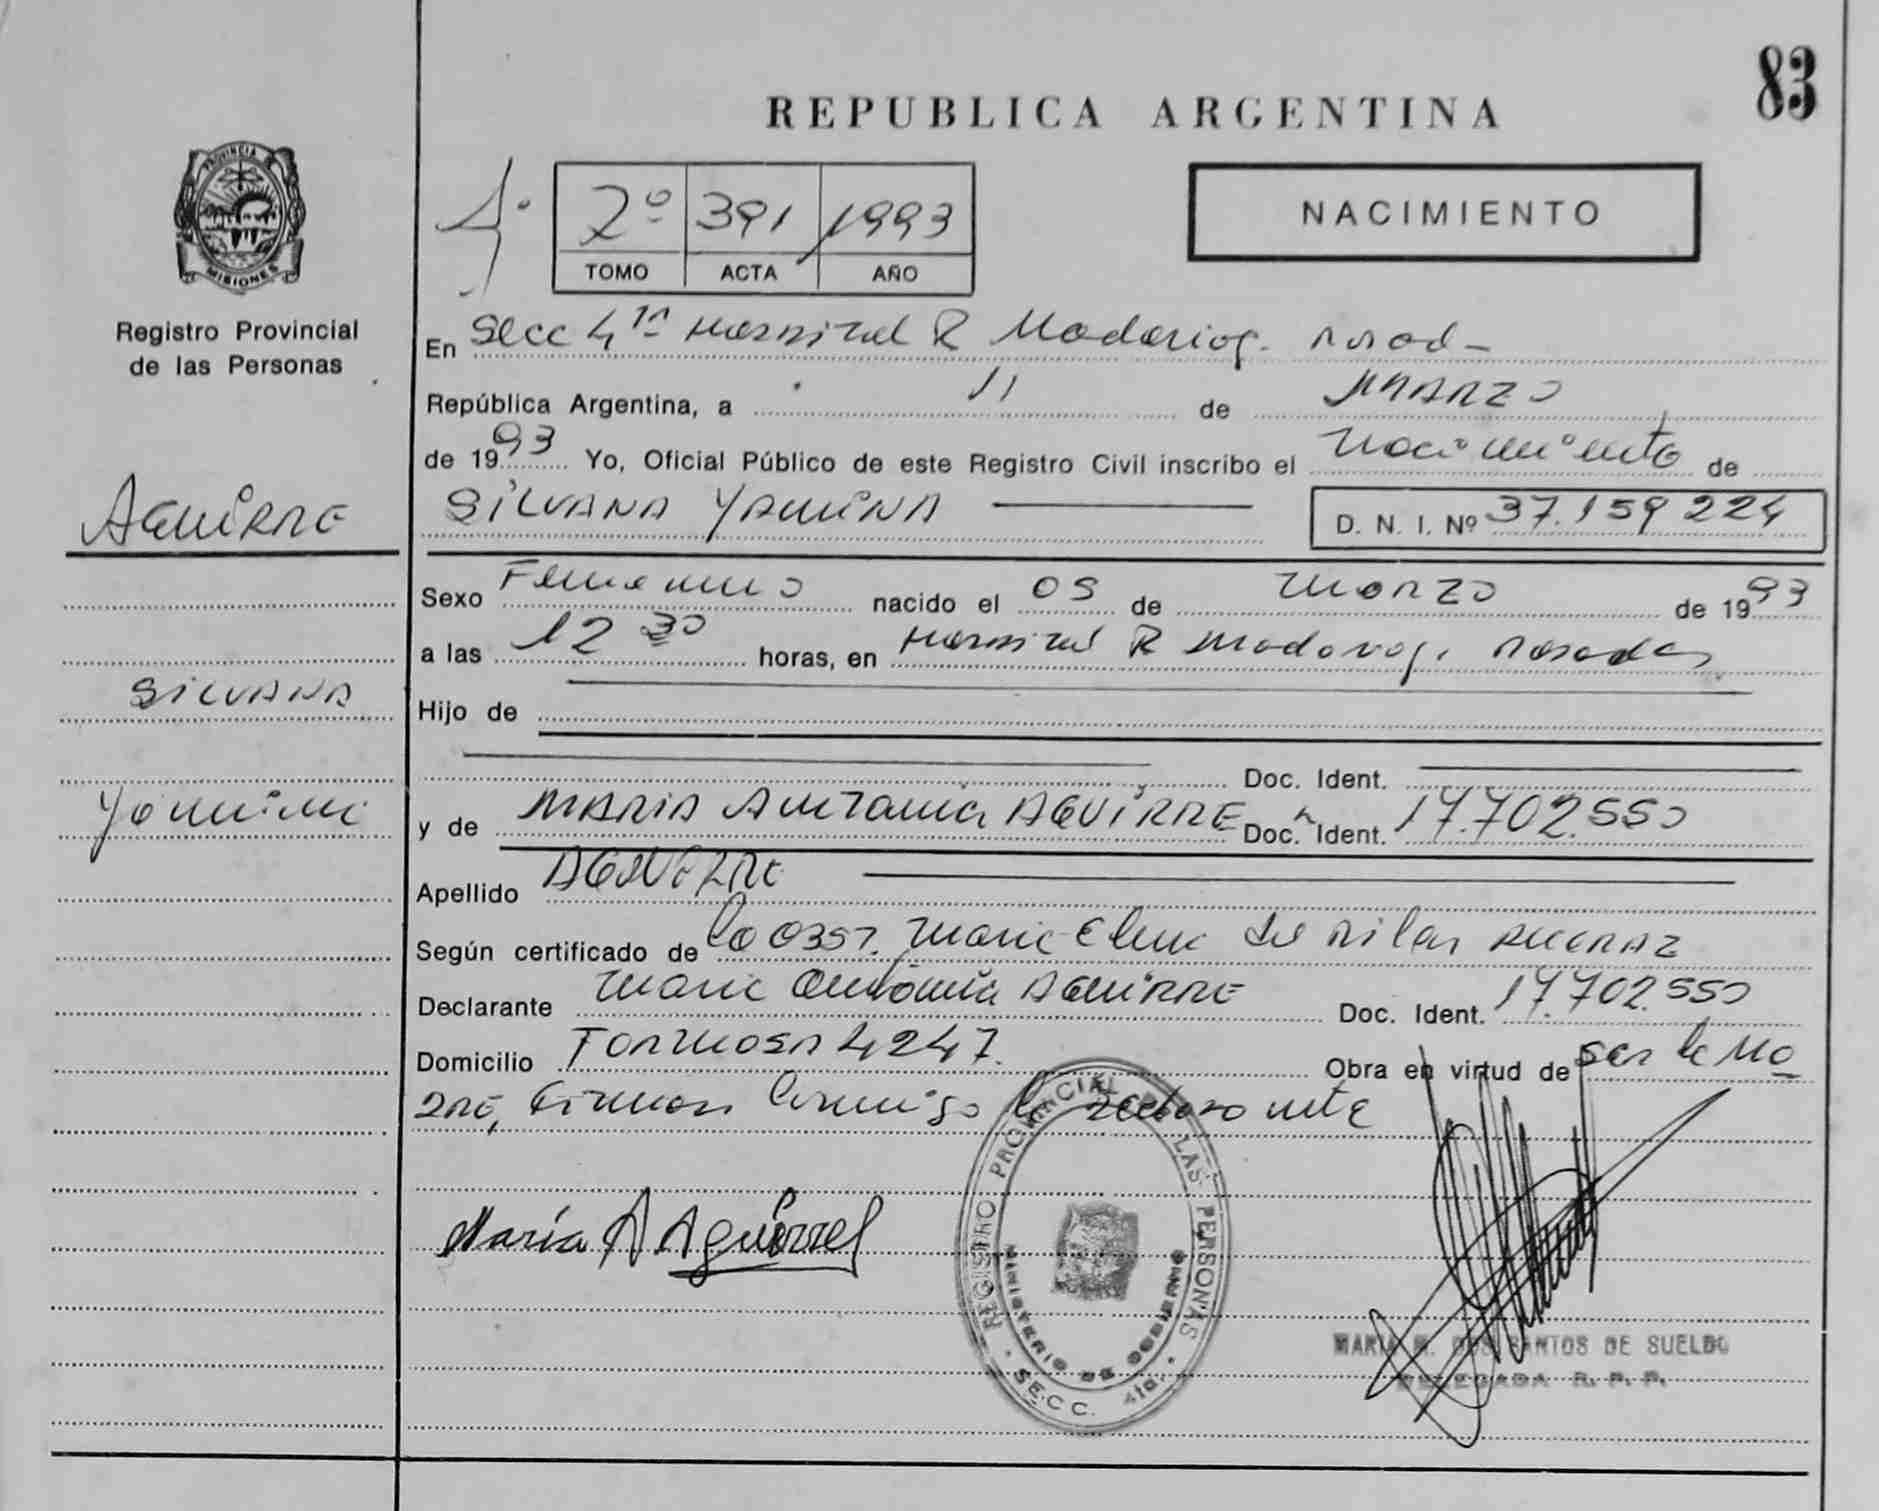 83
REPUBLICA ARGENTINA
PROVINCIA DE
MISIONES
Registro Provincial
de las Personas
2º 391 1993
TOMO ACTA AÑO
NACIMIENTO
En Secc 4ta Hospital R Madariag. Posad-
República Argentina, a 11 de MARZO
de 1993 Yo, Oficial Público de este Registro Civil inscribo el nacimiento de
AGUIRRE
SILVANA YAMINA
D. N. I. Nº 37.159 224
Sexo Femenino nacido el 05 de marzo de 1993
a las 12 30 horas, en Hospital R Madariag. Posadas
SILVANA
Hijo de
Doc. Ident.
Yamina
y de MARIA Antonia AGUIRRE Doc. Ident. 17.702.550
Apellido AGUIRRE
Según certificado de la Obst. Maria Elena del Pilar
Declarante Maria Antonia AGUIRRE Doc. Ident. 17.702.550
Domicilio Formosa 4247. Obra en virtud de ser la Ma
dre, Firman conmigo la declarante
María A Aguirre
REGISTRO PROVINCIAL DE LAS PERSONAS
MINISTERIO DE GOBIERNO
SECC. 4ta.
MARIA M. DOS SANTOS DE SUELDO
DELEGADA R. P. P.